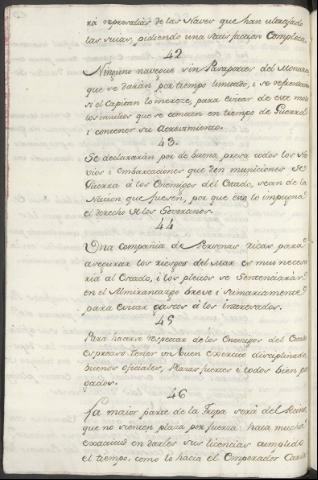 rá represalias de las Naves que han ultrajado
las suias, pidiendo una satisfaccion Completa.
42
Ninguno navegue sin Pasaportes del Monarca
que se darán por tiempo limitado, i se refrendarán
si el Capitan lo merece, para evitar de este modo
los insultos que se cometen en tiempo de Guerra
i contener su Atrevimiento.
43.
Se declararán por de buena presa todos los Na-
vios i embarcaciones que den municiones de
Guerra á los Enemigos del Estado, sean de la
Nacion que fuesen, por que ésto lo impugna
el derecho de los Soveranos.
44
Una compañia de Personas ricas para
asegurar los riesgos del Mar es mui necesa-
ria al Estado, i los pleitos se Sentenciarán
en el Almirantazgo breve i Sumariamente
para evitar gastos á los interesados.
45
Para hacerse respetar de los Enemigos del Estado
es preciso tener un buen exercito disciplinado
buenos oficiales, Plazas fuertes i todos bien pa-
gados.
46
La maior parte de la Tropa será del Reino
que no sienten plaza por fuerza: haia mucha
exactitud en darles sus licencias cumplido
el tiempo, como lo hacia el Emperador Carlos